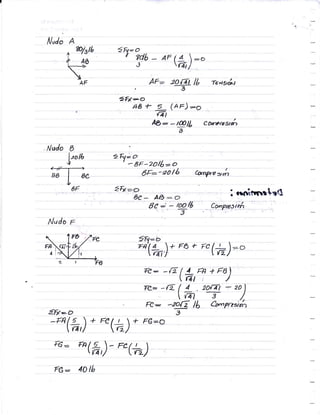 Nudo A
80/3 lb
AB
AF
ΣFy=0
80/3 lb - AF (4/√41) = 0
AF = 20√41/3 lb Tensión
ΣFx=0
AB + 5/√41 (AF) = 0
AB = -100/3 lb Compresión
Nudo B
20 lb
AB
BC
BF
ΣFy=0
-BF-20lb=0
BF=-20lb Compresión
ΣFx=0
BC - AB = 0
BC = -100/3 lb Compresión
Nudo F
FA
FB
FC
√41
4
5
√2
1
1
FG
ΣFy=0
FA (4/√41) + FB + FC (1/√2) = 0
FC = -√2 (4/√41 FA + FB)
FC = -√2 (4/√41 . 20√41/3 - 20)
FC = -20√2/3 lb Compresión
ΣFx=0
-FA (5/√41) + FC (1/√2) + FG=0
FG = FA (5/√41) - FC (1/√2)
FG = 40 lb